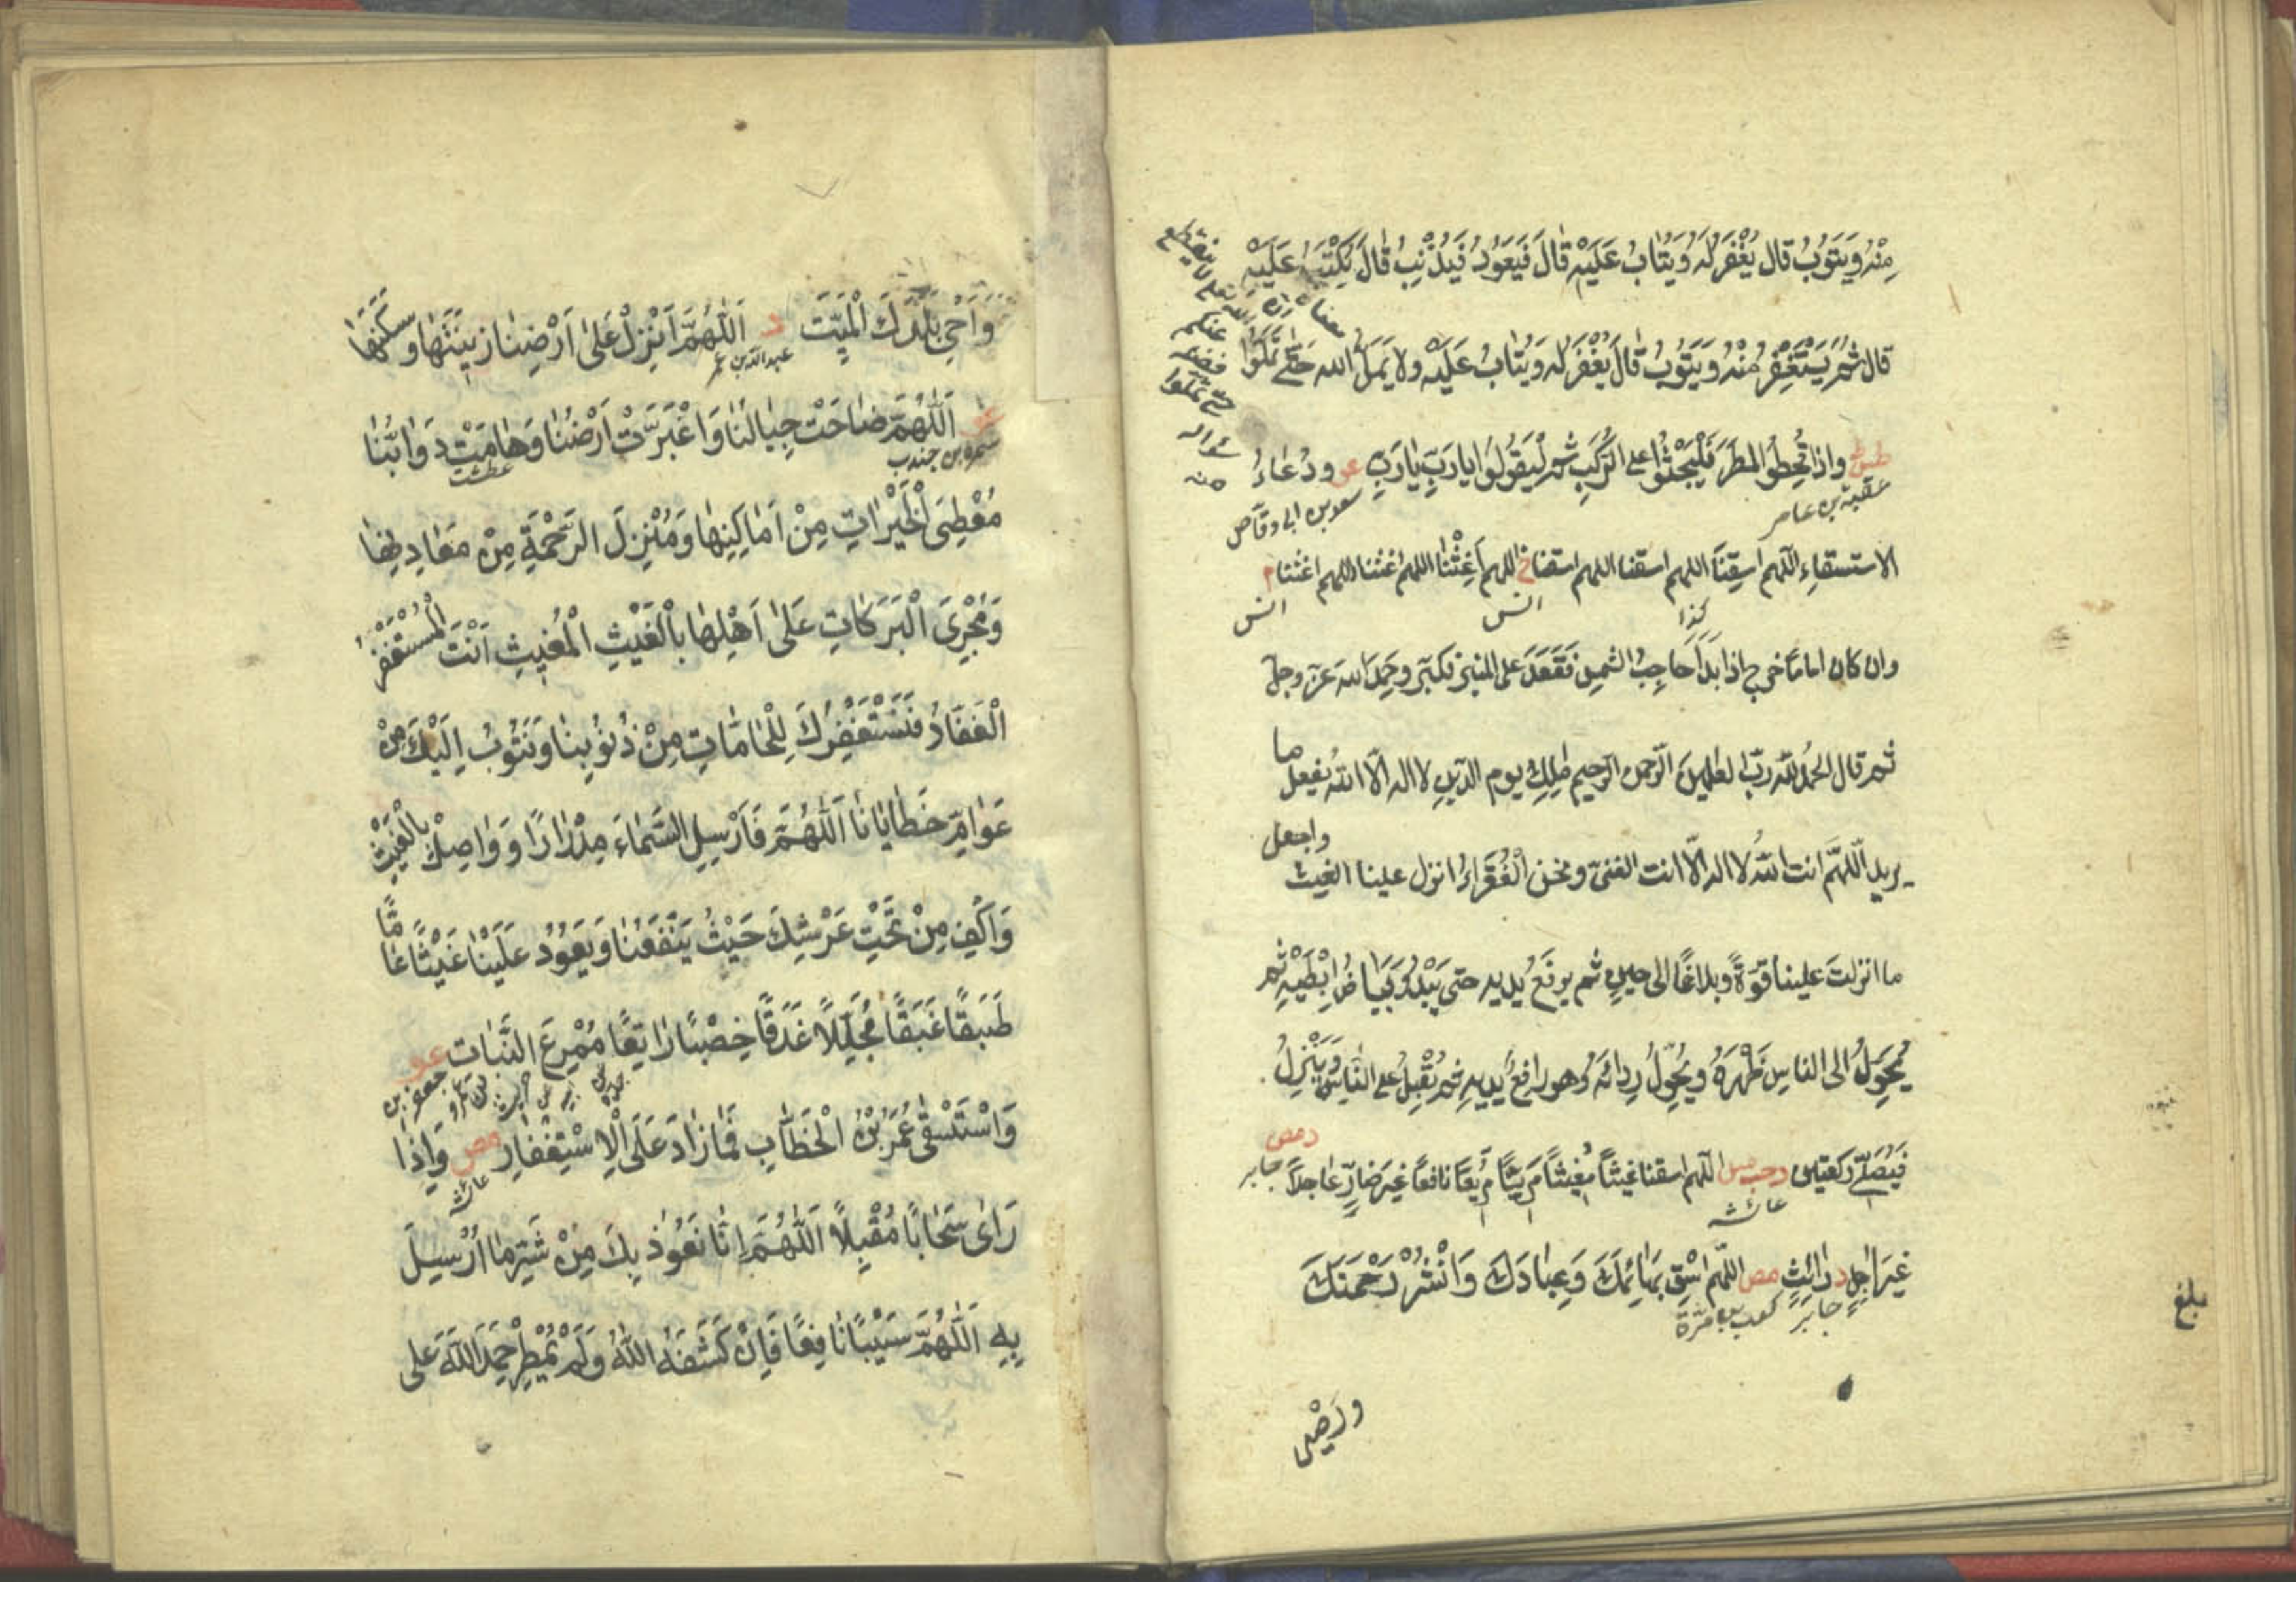 مِنْهُ وَيَتُوبُ قال يُغْفَرُ لَهُ وَيُتَابُ عَلَيْهِ قَالَ فَيَعُودُ فَيُذْنِبُ قَالَ يُكْتَبُ عَلَيْهِ
قال ثُمَّ يَسْتَغْفِرُ مِنْهُ وَيَتُوبُ قَالَ يُغْفَرُ لَهُ وَيُتَابُ عَلَيْهِ ولا يَمَلُّ الله حَتَّى تَمَلُّوا
طس واذا قُحِطُوا المطَرَ فَلْيَجْثُوا على الرُّكَبِ ثم لْيَقُولُوا يا رَبِّ يَا رَبِّ عو ودُعَاءُ
عقبة بن عامر سعد بن ابى وقاص
الاستسقاءِ اللّهم اسقِنَا اللهم اسقنا اللهم اسقنا خ اللهم اَغِثْنَا اللهم اغثنا اللهم اغثنا م
كذا انس انس
وان كان اماما خرج اذا بَدَا حَاجِبُ الشمس فَقَعَدَ على المنبر فكبّر وحَمِدَ الله عزّ وجلّ
ثم قال الحمدُ للّه ربّ العلمين الرّحمن الرّحيم ملِكِ يوم الدّينِ لا اله الّا الله يفعل ما
يريد اللّهمّ انت اللّهُ لا اله الّا انت الغنىّ ونحن الْفُقَرَاءُ انزل علينا الغيث واجعل
ما انزلتَ علينا قوّةً وبلاغًا الى حينٍ ثم يرفَعُ يديه حتى يَبْدُوَ بَيَاضُ اِبْطَيْهِ ثم
يُحَوِّلُ الى الناسِ ظَهْرَهُ ويُحَوِّلُ رِدَائَهُ وهو رافعٌ يديه ثم يُقْبِلُ على الناسِ وَيَنْزِلُ
فَيُصَلِّى ركعتين د حب مس اللّهم اسقنا غيثًا مُغِيثًا مَرِيئًا مَرِيعًا نافعًا غيرَ ضارٍّ عاجلًا د مص جابر
عائشه
غيرَ اٰجِلٍ د رائِثٍ مص اللّهم اسْقِ بَهَائِمَكَ وَعِبَادَكَ وَانْشُرْ رَحْمَتَكَ
جابر كعب بن مرّة
بلغ
وَاَحْيِ بَلَدَكَ الْمَيِّتَ د اَللّٰهُمَّ اَنْزِلْ عَلىٰ اَرْضِنَا زِينَتَهَا وَسَكَنَهَا
عبد الله بن عمر
عو اَللّٰهُمَّ ضَاحَتْ جِبَالُنَا وَاغْبَرَّتْ اَرْضُنَا وَهَامَتْ دَوَابُّنَا
سمرة بن جندب عطشت
مُعْطِىَ الْخَيْرَاتِ مِنْ اَمَاكِنِهَا وَمُنْزِلَ الرَّحْمَةِ مِنْ مَعَادِنِهَا
وَمُجْرِىَ الْبَرَكَاتِ عَلىٰ اَهْلِهَا بِالْغَيْثِ الْمُغِيثِ اَنْتَ الْمُسْتَغْفَرُ
الْغَفَّارُ فَنَسْتَغْفِرُكَ لِلْحَامَّاتِ مِنْ ذُنُوبِنَا وَنَتُوبُ اِلَيْكَ مِنْ
عَوَامِّ خَطَايَانَا اَللّٰهُمَّ فَاَرْسِلِ السَّمَاءَ مِدْرَارًا وَوَاصِلْ بِالْغَيْثِ
وَاكِفِ مِنْ تَحْتِ عَرْشِكَ حَيْثُ يَنْفَعُنَا وَيَعُودُ عَلَيْنَا غَيْثًا عَامًّا
طَبَقًا غَبَقًا مُجَلِّلًا غَدَقًا خِصْبًا رَاتِعًا مُمْرِعَ النَّبَاتِ عو
جعفر بن عمرو بن حريث عن ابيه عن جده
وَاسْتَسْقىٰ عُمَرُ بْنُ الْخَطَّابِ فَمَا زَادَ عَلَى الْاِسْتِغْفَارِ مص وَاِذَا
عائشه
رَاىٰ سَحَابًا مُقْبِلًا اَللّٰهُمَّ اِنَّا نَعُوذُ بِكَ مِنْ شَرِّ مَا اُرْسِلَ
بِهِ اَللّٰهُمَّ سَيْبًا نَافِعًا فَاِنْ كَشَفَهُ اللّٰهُ وَلَمْ يُمْطِرْ حَمِدَ اللّٰهَ عَلى